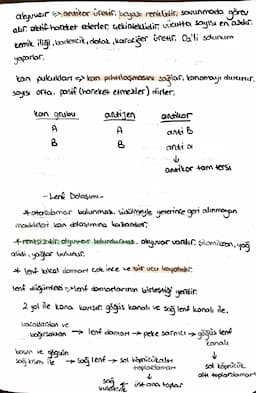 akyuvar => antikor üretir. beyaz renklidir. savunmada görev
alır. aktif hareket ederler. çekirdeklidir. vücutta sayısı en azdır.
kemik iliği, bademcik, dalak, karaciğer üretir. O₂'li solunum
yaparlar.
kan pulcukları => kan pıhtılaşmasını sağlar, kanamayı durdurur.
sayısı orta. pasif (hareket etmezler) dirler.
kan grubu antijen antikor
A A anti B
B B anti a
↓
antikor tam tersi
- Lenf Dolaşımı -
* atardamar bulunmaz. süzülmeyle yeterince geri alınmayan
maddeleri kan dolaşımına
* renksizdir. alyuvar bulundurmaz. akyuvar vardır. glomikron, yağ
asidi, yağlar bulunur.
* lenf kılcal damarı tek ince ve bir ucu kapalıdır.
lenf düğümleri => lenf damarlarının birleştiği yerdir.
2 yol ile kana karışır. göğüs kanalı ve sağ lenf kanalı ile.
bacaklardan ve
bağırsaktan → lenf damarı → peke sarnıcı → göğüs lenf
kanalı
↓
sol köprücük
altı toplardamarı
başın ve göğsün
sağ kısmı ile → sağ lenf → sol köprücükaltı
toplardamarı
↓
sağ ← üst ana toplar